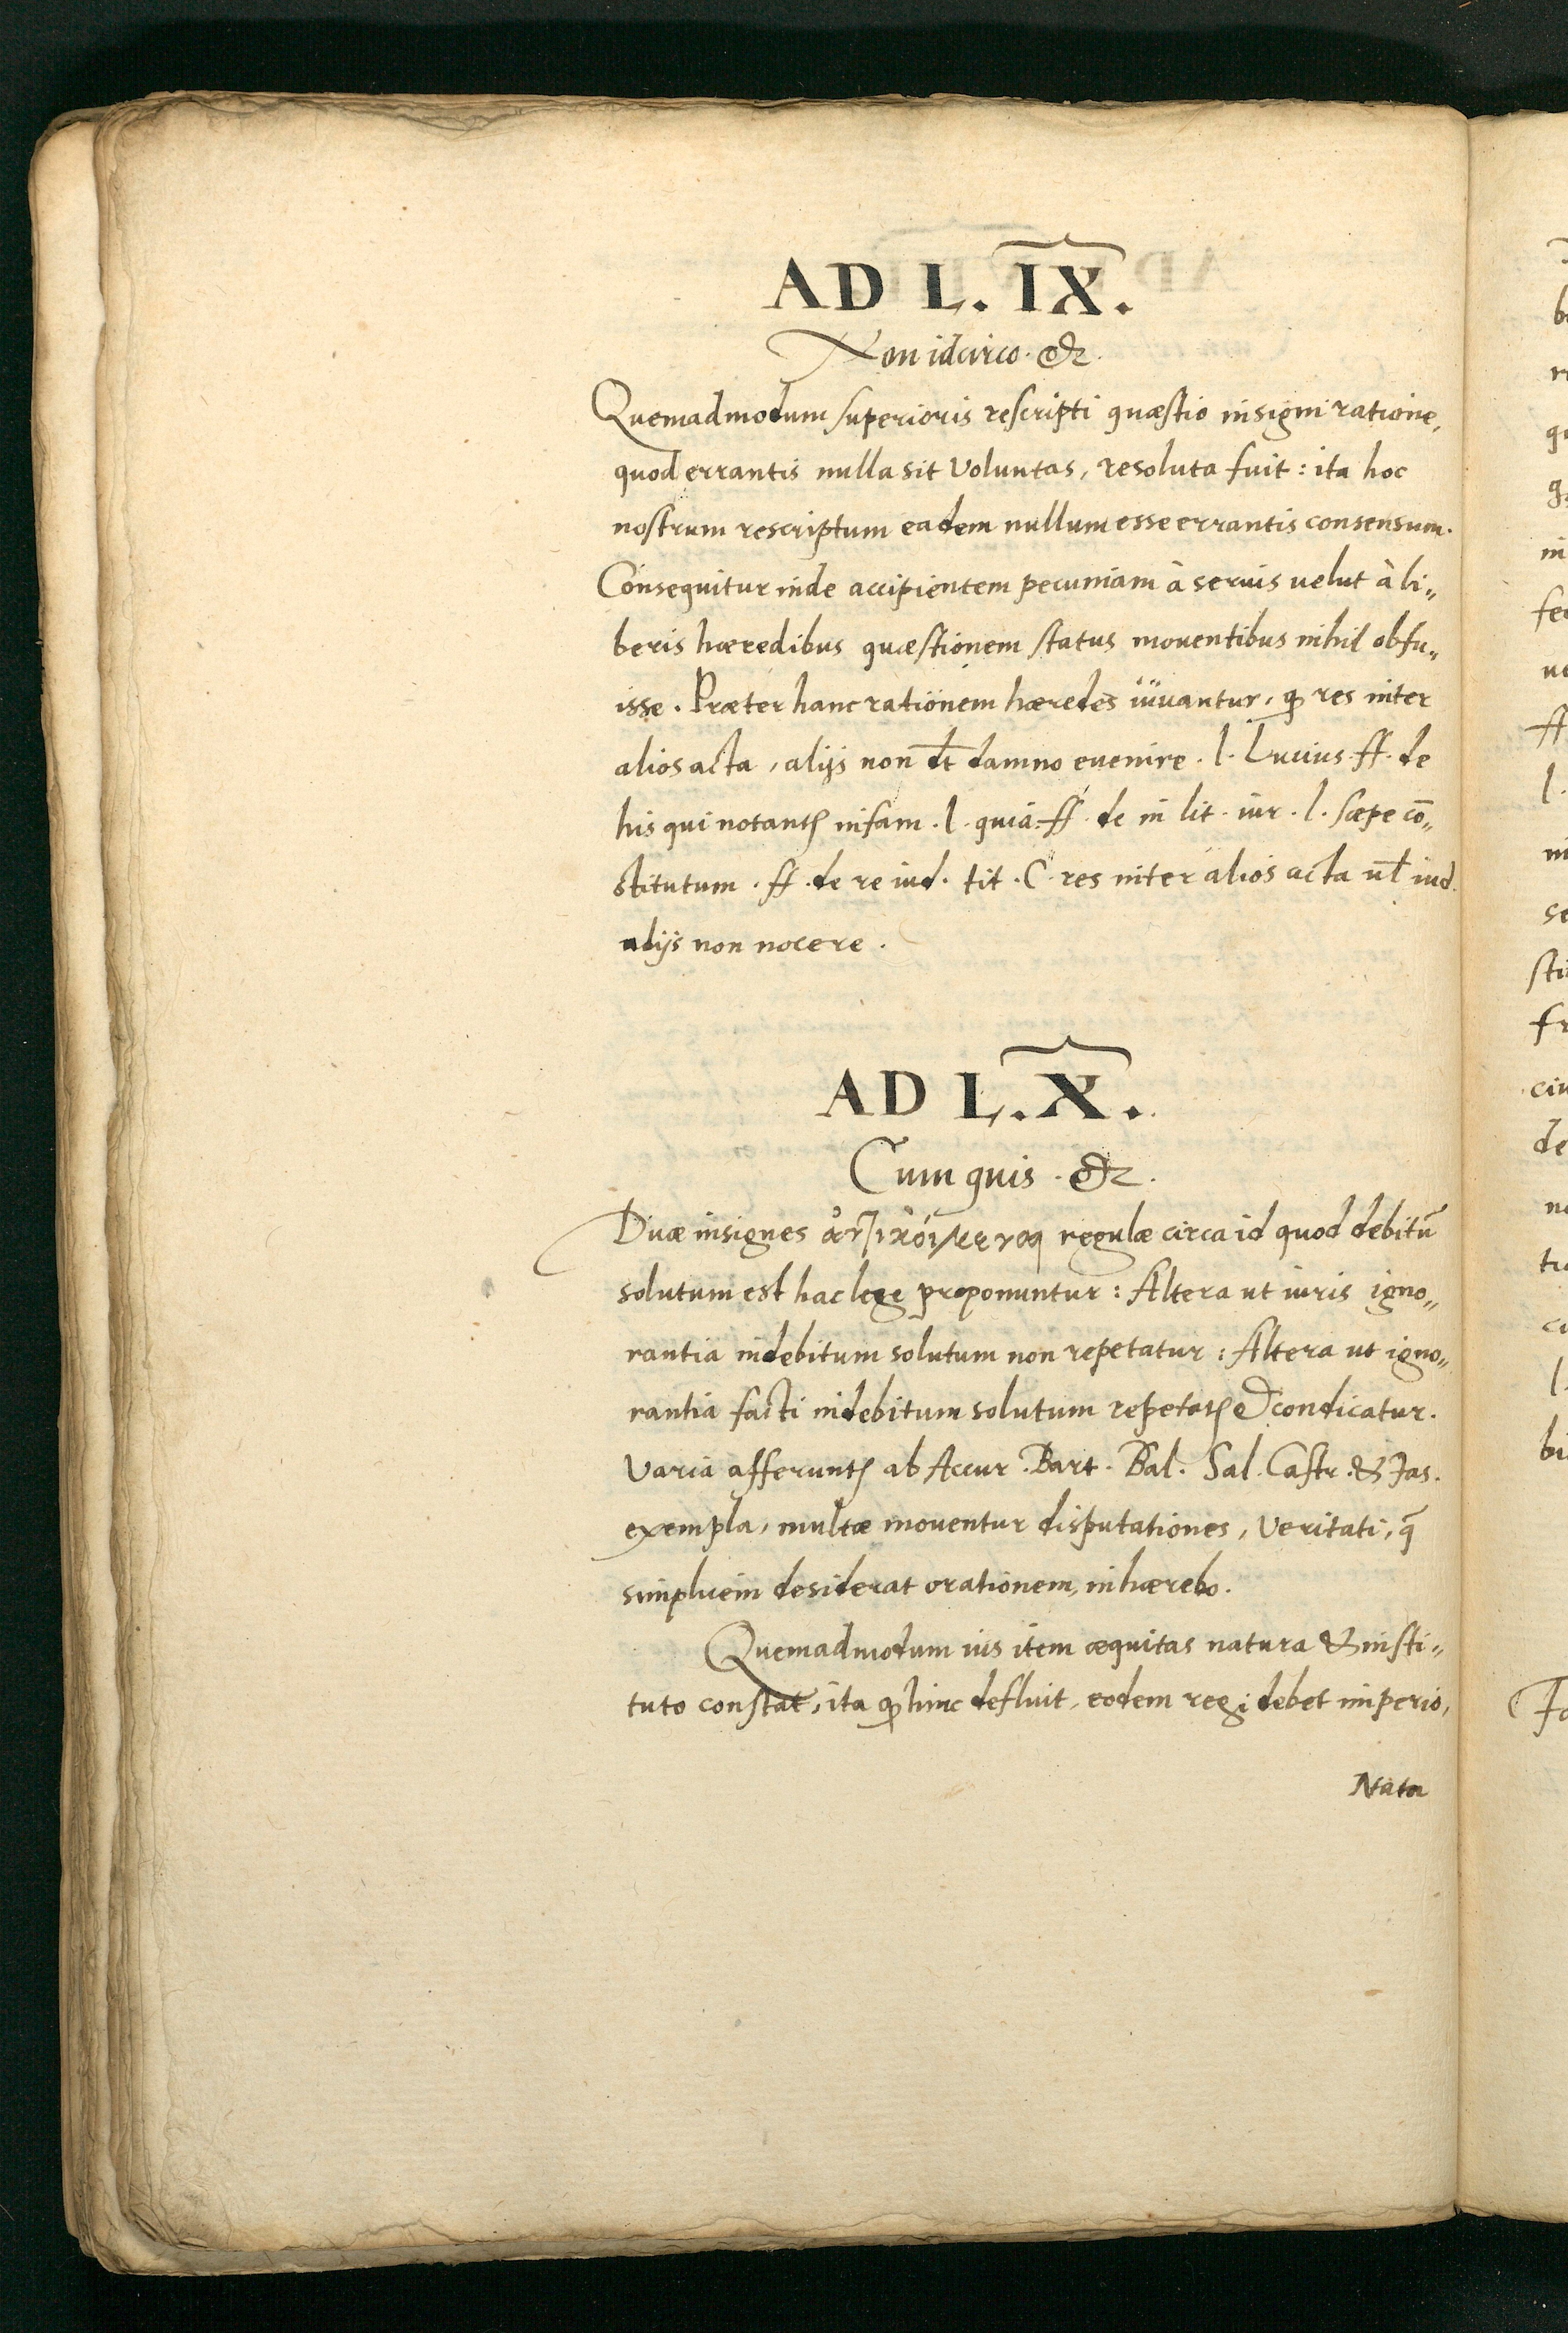 AD L. IX.
Non idcirco. &.
Quemadmodum superioris rescripti quæstio insigni ratione,
quod errantis nulla sit voluntas, resoluta fuit: ita hoc
nostrum rescriptum eadem nullum esse errantis consensum.
Consequitur inde accipientem pecuniam à seruis uelut à li„
beris hæredibus quæstionem status mouentibus nihil obfu„
isse. Præter hanc rationem hæredes iuuantur, ꝙ res inter
alios acta, alijs non dt̄ damno euenire. l. Lucius. ff. de
his qui notantꝭ infam. l. quia. ff. de in lit. iur. l. sæpe cō„
stitutum. ff. de re iud. tit. C. res inter alios acta ul̄ iud.
alijs non nocere.
AD L. X.
Cum quis. &.
Duæ insignes regulæ circa id quod debitū
solutum est hac lege proponuntur: Altera ut iuris igno„
rantia indebitum solutum non repetatur: Altera ut igno„
rantia facti indebitum solutum repetatꝭ & condicatur.
Varia afferuntꝭ ab Accur. Bart. Bal. Sal. Castr. & Jas.
exempla, multæ mouentur disputationes, Veritati, q̄
simplicem desiderat orationem, inhærebo.
Quemadmodum ius item æquitas natura & insti„
tuto constat, ita ꝙ hinc defluit, eodem regi debet imperio,
Natu